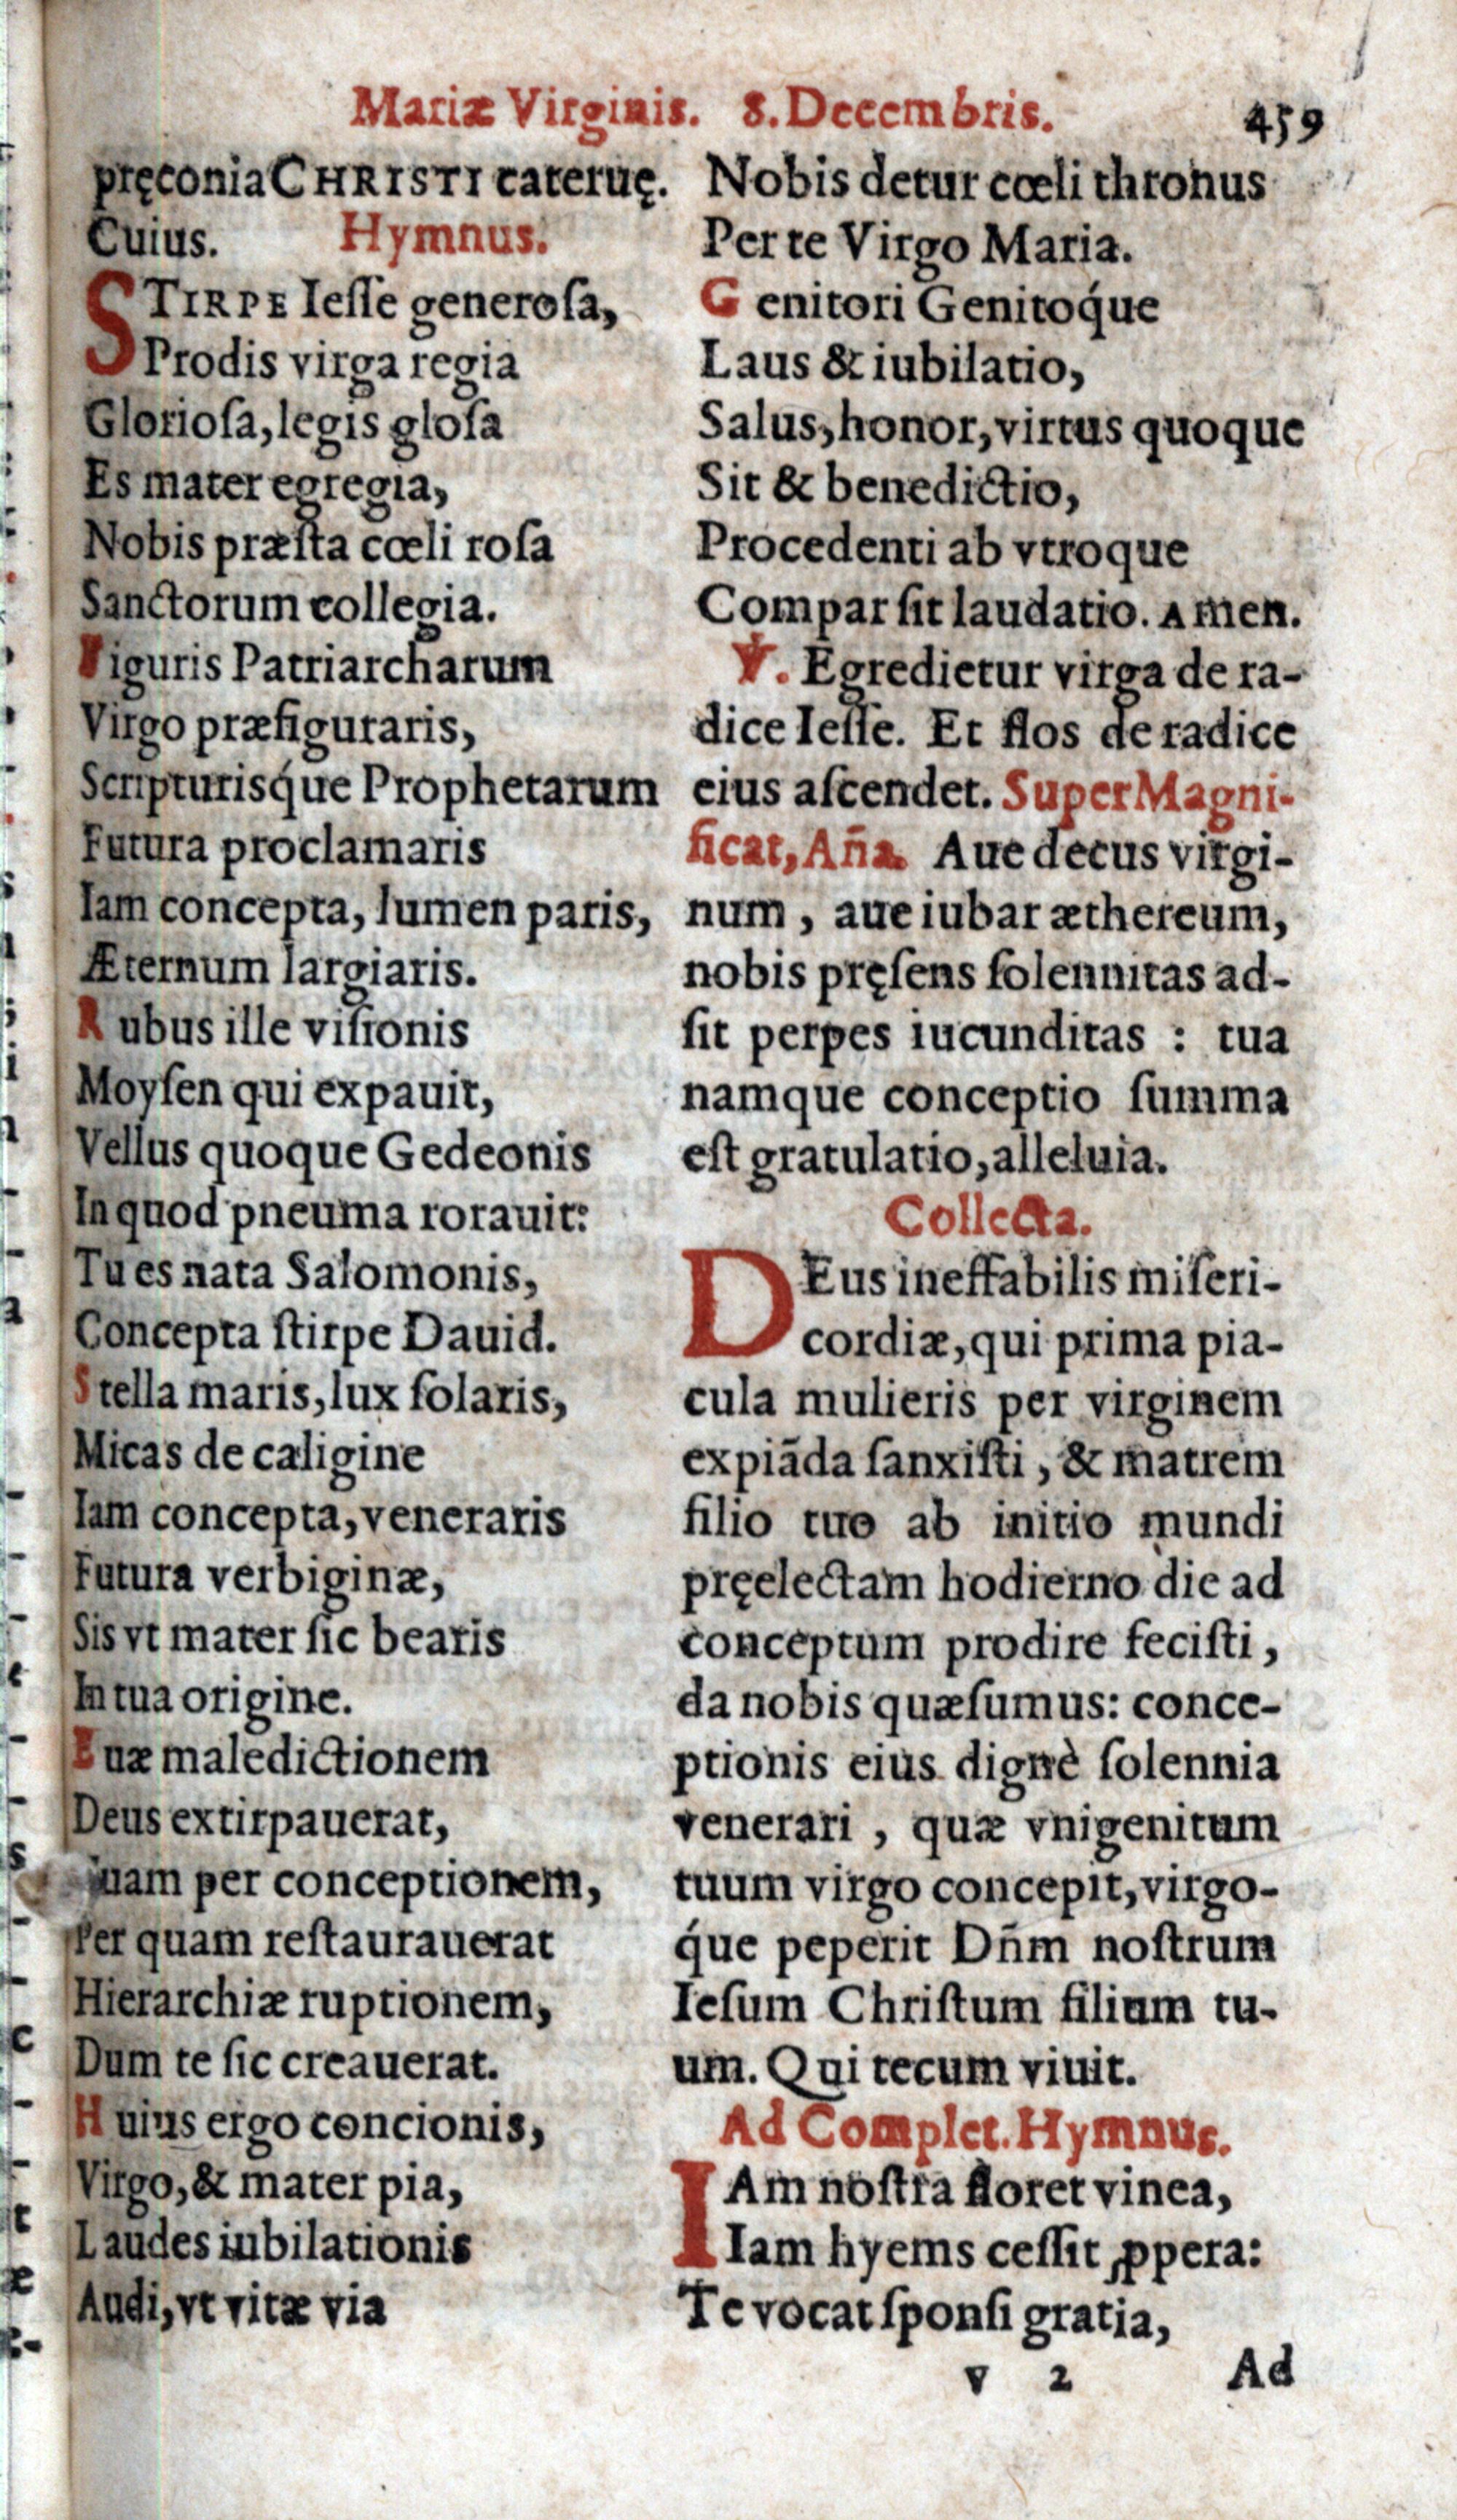 Mariæ Virginis. 8. Decembris. 459
pręconia CHRISTI cateruę.
Cuius. Hymnus.
STIRPE Ieſſe generoſa,
Prodis virga regia
Glorioſa, legis gloſa
Es mater egregia,
Nobis præſta cœli roſa
Sanctorum collegia.
Figuris Patriarcharum
Virgo præfiguraris,
Scripturisq́ue Prophetarum
Futura proclamaris
Iam concepta, lumen paris,
Æternum largiaris.
Rubus ille viſionis
Moyſen qui expauit,
Vellus quoque Gedeonis
In quod pneuma rorauit:
Tu es nata Salomonis,
Concepta ſtirpe Dauid.
Stella maris, lux ſolaris,
Micas de caligine
Iam concepta, veneraris
Futura verbiginæ,
Sis vt mater ſic bearis
In tua origine.
Euæ maledictionem
Deus extirpauerat,
per conceptionem,
Per quam reſtaurauerat
Hierarchiæ ruptionem,
Dum te ſic creauerat.
Huius ergo concionis,
Virgo, & mater pia,
Laudes iubilationis
Audi, vt vitæ via
Nobis detur cœli thronus
Per te Virgo Maria.
Genitori Genitoq́ue
Laus & iubilatio,
Salus, honor, virtus quoque
Sit & benedictio,
Procedenti ab vtroque
Compar ſit laudatio. Amen.
℣. Egredietur virga de ra-
dice Ieſſe. Et flos de radice
eius aſcendet. Super Magni-
ficat, Añа. Aue decus virgi-
num, aue iubar æthereum,
nobis pręſens ſolennitas ad-
ſit perpes iucunditas : tua
namque conceptio ſumma
eſt gratulatio, alleluia.
Collecta.
DEus ineffabilis miſeri-
cordiæ, qui prima pia-
cula mulieris per virginem
expiāda ſanxiſti, & matrem
filio tuo ab initio mundi
pręelectam hodierno die ad
conceptum prodire feciſti,
da nobis quæſumus: conce-
ptionis eius dignè ſolennia
venerari, quæ vnigenitum
tuum virgo concepit, virgo-
q́ue peperit Dñm noſtrum
Ieſum Chriſtum filium tu-
um. Qui tecum viuit.
Ad Complet. Hymnus.
IAm noſtra floret vinea,
Iam hyems ceſſit ꝓpera:
Te vocat ſponſi gratia,
v 2 Ad